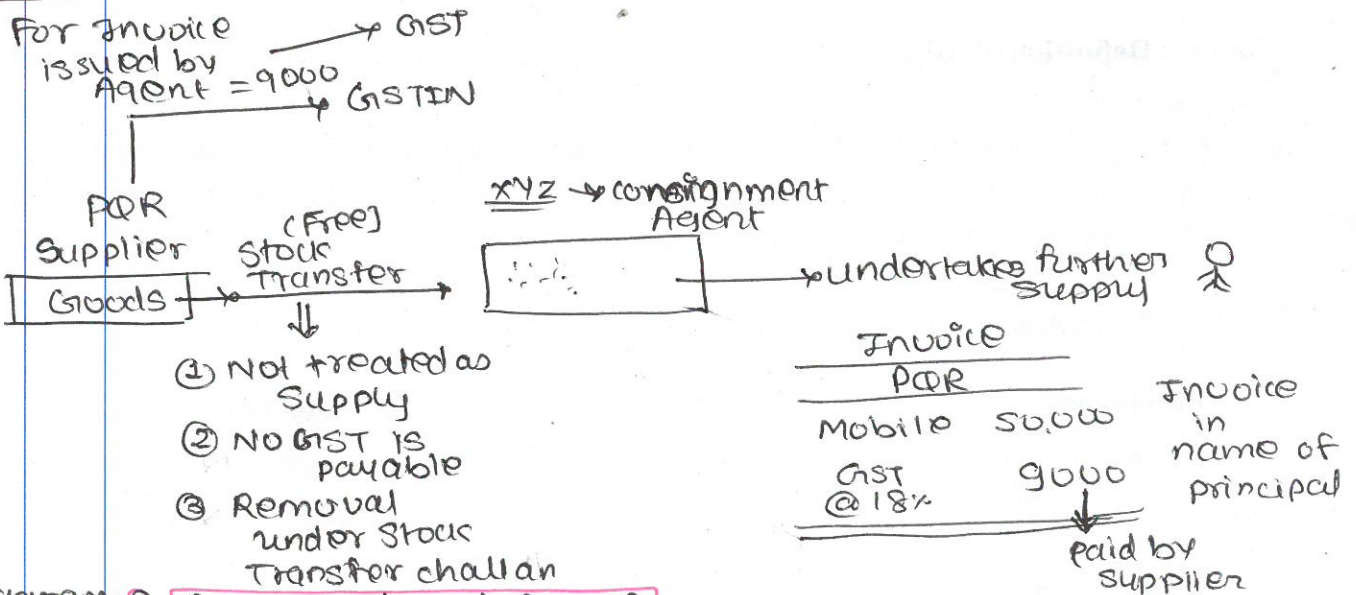 For Invoice
issued by
Agent = 9000
GST
GSTIN
PQR
Supplier
Goods
(Free]
Stock
Transfer
XYZ → consignment
Agent
undertakes further
supply
① Not treated as
Supply
② NO GST IS
payable
③ Removal
under Stock
Transfer challan
Invoice
PQR
Mobile 50,000
GST 9000
@ 18%
Invoice
in
name of
principal
paid by
supplier